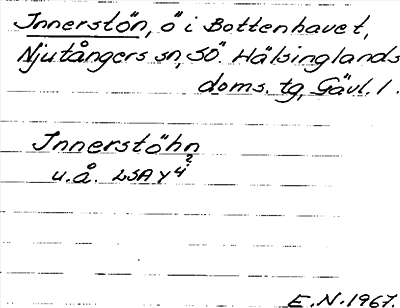 Innerstön, ö i Bottenhavet,
Njutångers sn, SÖ. Hälsinglands
doms. tg, Gävl. l.
Innerstöhn
u.å. LSA Y 4 2
E.N. 1967.